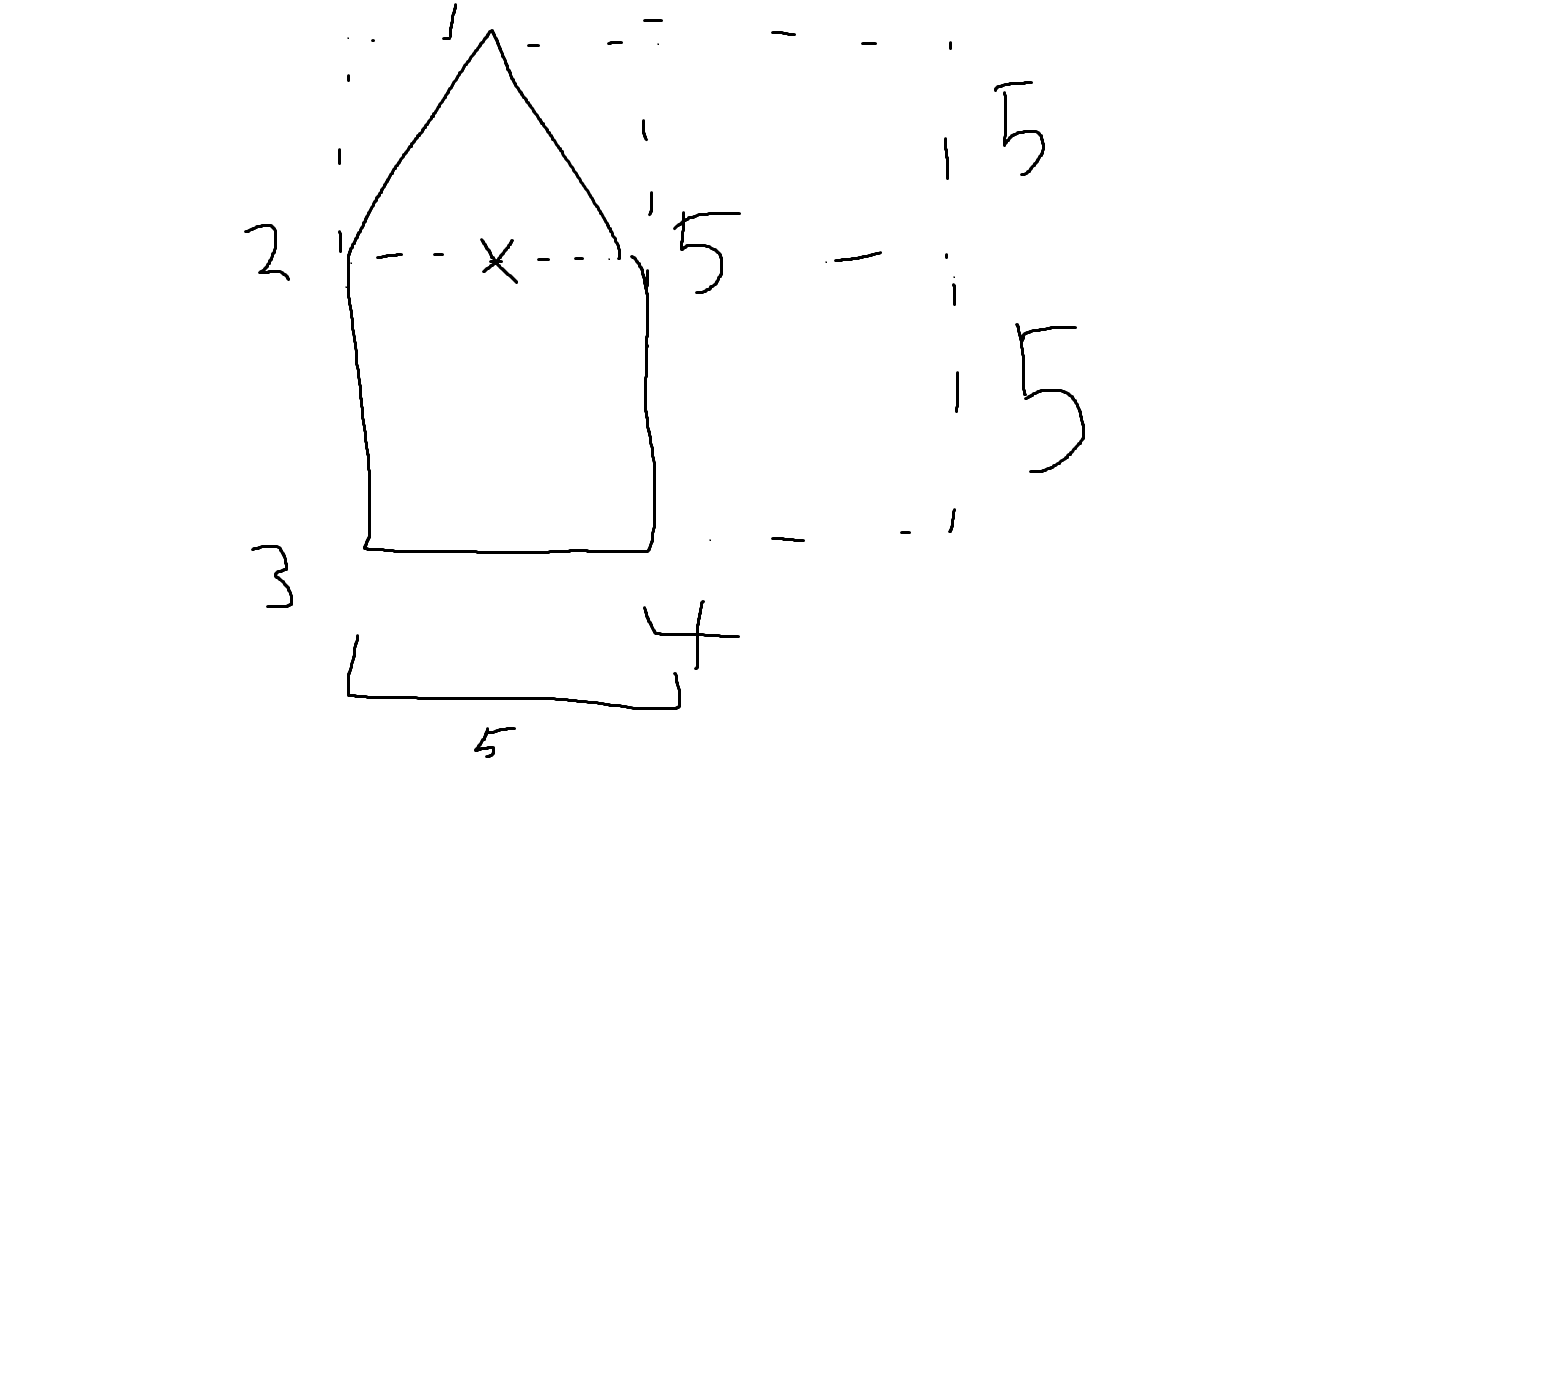 1
5
2
X
5
5
3
4
5